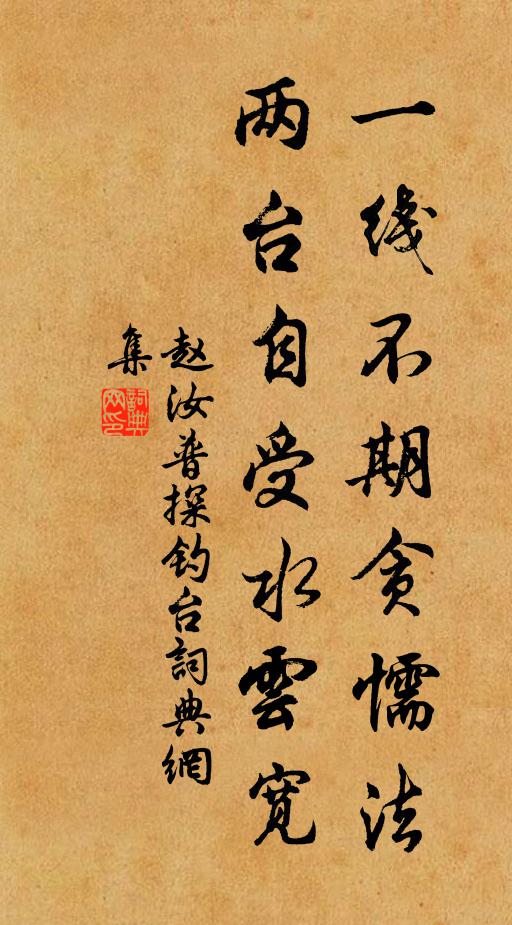 一线不期贪懦法
两台自受水雲宽
赵汝普探钓台詞典網
集
詞典網印